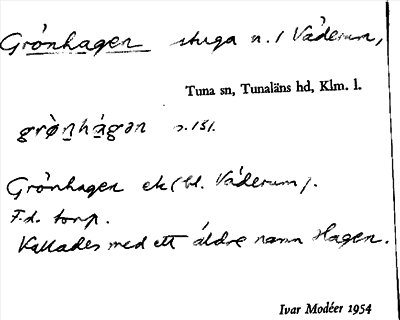 Grönhagen stuga n. / Väderum,
Tuna sn, Tunaläns hd, Klm. l.
grö̀nhá̱gən s. 151.
Grönhagen ek (bl. Väderum).
F.d. torp.
Kallades med ett äldre namn Hagen.
Ivar Modéer 1954